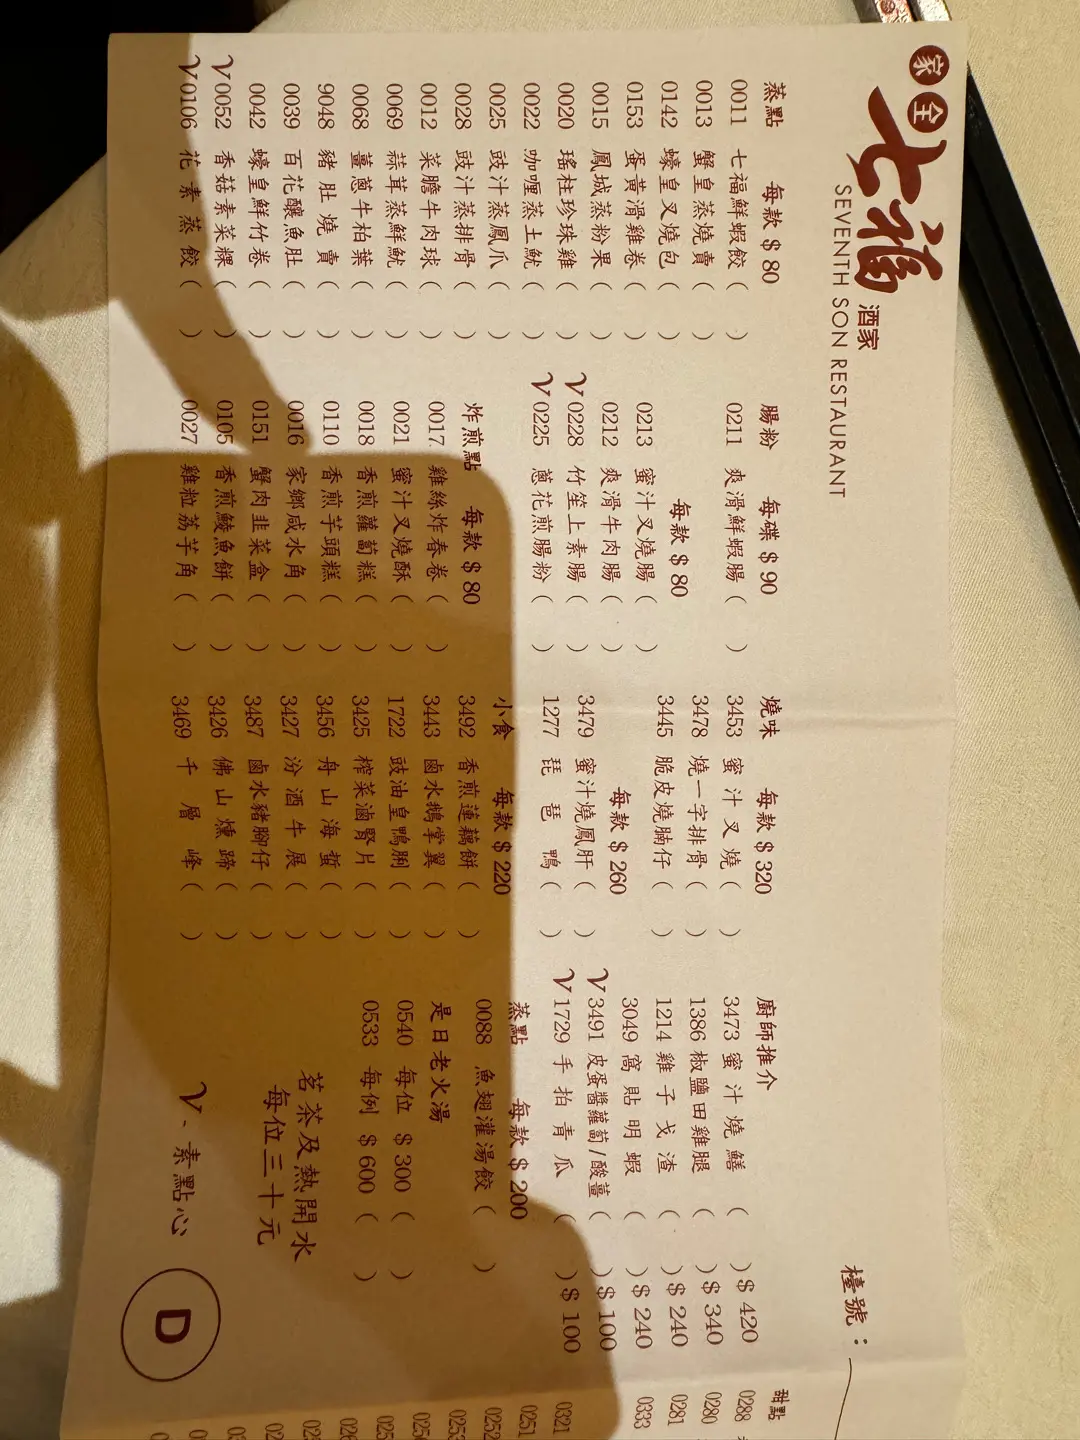 家全七福酒家
SEVENTH SON RESTAURANT
檯號：
蒸點 每款 $ 80
0011 七福鮮蝦餃 ( )
0013 蟹皇蒸燒賣 ( )
0142 蠔皇叉燒包 ( )
0153 蛋黃滑雞卷 ( )
0015 鳳城蒸粉果 ( )
0020 瑤柱珍珠雞 ( )
0022 咖喱蒸土魷 ( )
0025 豉汁蒸鳳爪 ( )
0028 豉汁蒸排骨 ( )
0012 菜膽牛肉球 ( )
0069 蒜茸蒸鮮魷 ( )
0068 薑蔥牛柏葉 ( )
9048 豬肚燒賣 ( )
0039 百花釀魚肚 ( )
0042 蠔皇鮮竹卷 ( )
V 0052 香菇素菜粿 ( )
V 0106 花素蒸餃 ( )
腸粉 每碟 $ 90
0211 爽滑鮮蝦腸 ( )
每款 $ 80
0213 蜜汁叉燒腸 ( )
0212 爽滑牛肉腸 ( )
V 0228 竹笙上素腸 ( )
V 0225 蔥花煎腸粉 ( )
炸煎點 每款 $ 80
0017 雞絲炸春卷 ( )
0021 蜜汁叉燒酥 ( )
0018 香煎蘿蔔糕 ( )
0110 香煎芋頭糕 ( )
0016 家鄉咸水角 ( )
0151 蟹肉韭菜盒 ( )
0105 香煎鯪魚餅 ( )
0027 雞粒荔芋角 ( )
燒味 每款 $ 320
3453 蜜汁叉燒 ( )
3478 燒一字排骨 ( )
3445 脆皮燒腩仔 ( )
每款 $ 260
3479 蜜汁燒鳳肝 ( )
1277 琵琶鴨 ( )
小食 每款 $ 220
3492 香煎蓮藕餅 ( )
3443 鹵水鵝掌翼 ( )
1722 豉油皇鴨脷 ( )
3425 榨菜滷腎片 ( )
3456 舟山海蜇 ( )
3427 汾酒牛展 ( )
3487 鹵水豬腳仔 ( )
3426 佛山燻蹄 ( )
3469 千層峰 ( )
廚師推介
3473 蜜汁燒鱔 ( ) $ 420
1386 椒鹽田雞腿 ( ) $ 340
1214 雞子戈渣 ( ) $ 240
3049 窩貼明蝦 ( ) $ 240
V 3491 皮蛋醬蘿蔔/酸薑 ( ) $ 100
V 1729 手拍青瓜 ( ) $ 100
蒸點 每款 $ 200
0088 魚翅灌湯餃 ( )
是日老火湯
0540 每位 $ 300 ( )
0533 每例 $ 600 ( )
茗茶及熱開水
每位三十元
V - 素點心
D
甜點
0288
0280
0281
0333
0321
0251
0252